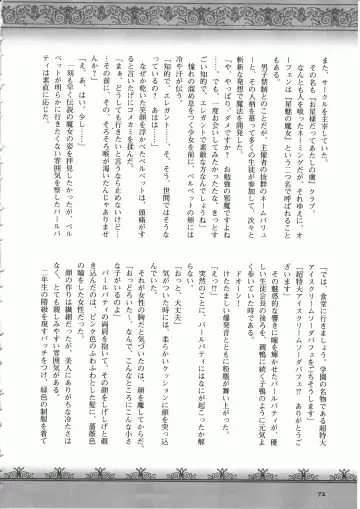 また、サークルを主宰していた。
その名も『お星様だってあたしの虜』クラブ。
なんとも人を喰ったネーミングだが、それゆえに、オ
ーフェンは『星魅の魔女』という二つ名で呼ばれること
になった。
男子禁制とのことだが、主催者の抜群のネームバリュ
ーと、その人柄を慕って多くの生徒が参加して、次々と
斬新な発想で魔法を開発した。
「や、やっぱり、ダメですか？　お勉強の邪魔ですよね
……。でも、一度お会いしてみたかったな。きっとすっ
ごい知的で、エレガントで素敵な方なんでしょうね」
憧れの溜め息をつく少女を前に、ベルベットの頬には
冷や汗が伝う。
「知的で、エレガント……。そ、そう、世間ではそうな
っているのか……。あははは……」
なぜか乾いた笑顔を浮かべたベルベットは、頭痛がす
ると言いたげにコメカミを揉んだ。
「まぁ、どうしても行きたいと言うなら止めないけど…
…その前に、そろそろ喉が渇いたんじゃありませ
んか？」
「え、あ、はい。少し……」
一刻も早く伝説の魔女の姿を拝見したかったが、ベル
ベットが明らかに行きたくない雰囲気を察したパールパ
ティは素直に応じた。
「では、食堂に行きましょう。学園の名物である超特大
アイスクリームソーダパフェをごちそうします」
「超特大アイスクリームソーダパフェ⁉　ありがとうご
ざいます」
その魅惑的な響きに瞳を輝かせたパールパティが、優
しい生徒会長の後ろを、親鴨に続く子鴨のように元気よ
く歩いていた時である。
ドオーン！
けたたましい爆発音とともに粉塵が舞い上がった。
突然のことに、パールパティにはなにが起こったか解
らない。
「おっと、大丈夫」
気づいた時には、柔らかいクッションに顔を突っ込
んでいた。
それが女性の胸だと気づいたのは、顔を離してからだ。
「おっどろいた！　なんで、こんなところにこんな小さ
な子がいるのよ」
パールパティの両肩を抱いて、その顔をしげしげと覗
き込んだのは、ピンク色のふわふわとした髪に、薔薇色
の瞳をした女性だった。
顔の作りは繊細だったが、美人にありがちな冷たさは
なく、とても親しみやすい雰囲気がある。
二年生の階級を現すバッヂをつけ、緑色の制服を着て
72